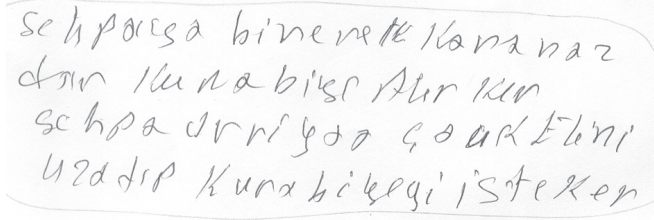 sehpaıya binerek Kavanaz
dan Kurabiye Alır Ken
sehpa devriliyor çocuk Elini
uzatıp Kurabiyeyi isteKen